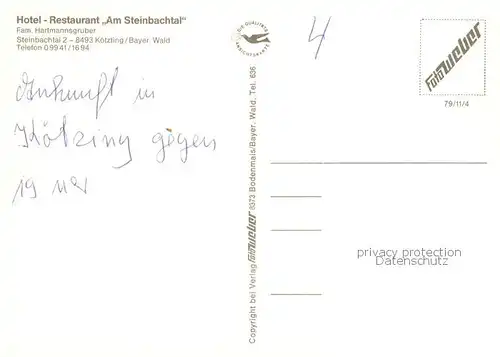 Hotel - Restaurant „Am Steinbachtal"
Fam. Hartmannsgruber
Steinbachtal 2 – 8493 Kötzting/Bayer. Wald
Telefon 0 99 41 / 16 94
Ankunft in
Kötzing gegen
19 Uhr
DIE QUALITÄTS
ANSICHTSKARTE
4
Copyright bei Verlag Foto Weber 8373 Bodenmais/Bayer. Wald. Tel. 636
Foto Weber
79/11/4
privacy protection
Datenschutz